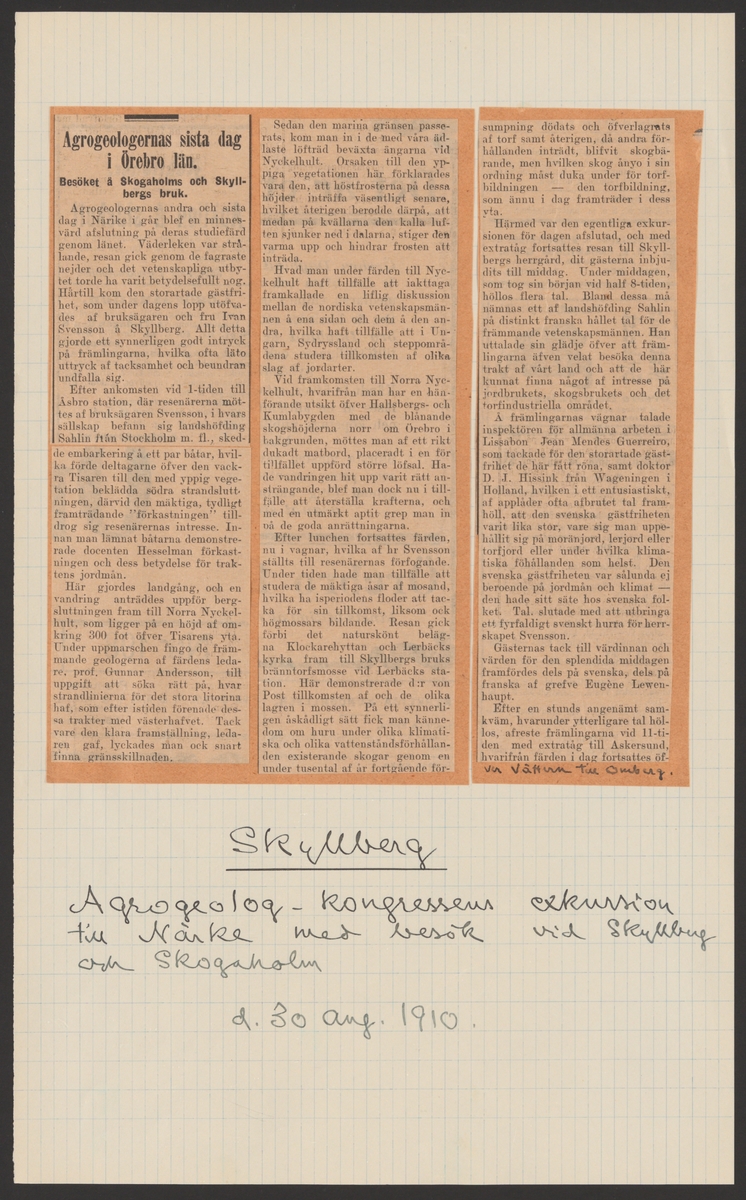 Agrogeologernas sista dag
i Örebro län.
Besöket å Skogaholms och Skyll-
bergs bruk.
Agrogeologernas andra och sista
dag i Närike i går blef en minnes-
värd afslutning på deras studiefärd
genom länet. Väderleken var strå-
lande, resan gick genom de fagraste
nejder och det vetenskapliga utby-
tet torde ha varit betydelsefullt nog.
Härtill kom den storartade gästfri-
het, som under dagens lopp utöfva-
des af bruksägaren och fru Ivan
Svensson å Skyllberg. Allt detta
gjorde ett synnerligen godt intryck
på främlingarna, hvilka ofta läto
uttryck af tacksamhet och beundran
undfalla sig.
Efter ankomsten vid 1-tiden till
Åsbro station, där resenärerna möt-
tes af bruksägaren Svensson, i hvars
sällskap befann sig landshöfding
Sahlin från Stockholm m. fl., sked-
de embarkering å ett par båtar, hvil-
ka förde deltagarne öfver den vack-
ra Tisaren till den med yppig vege-
tation beklädda södra strandslutt-
ningen, därvid den mäktiga, tydligt
framträdande "förkastningen" till-
drog sig resenärernas intresse. In-
nan man lämnat båtarna demonstre-
rade docenten Hesselman förkast-
ningen och dess betydelse för trak-
tens jordmån.
Här gjordes landgång, och en
vandring anträddes uppför berg-
sluttningen fram till Norra Nyckel-
hult, som ligger på en höjd af om-
kring 300 fot öfver Tisarens yta.
Under uppmarschen fingo de främ-
mande geologerna af färdens leda-
re, prof. Gunnar Andersson, till
uppgift att söka rätt på, hvar
strandlinierna för det stora litorina
haf, som efter istiden förenade des-
sa trakter med västerhafvet. Tack
vare den klara framställning, leda-
ren gaf, lyckades man ock snart
finna gränsskillnaden.
Sedan den marina gränsen passe-
rats, kom man in i de med våra äd-
laste löfträd beväxta ängarna vid
Nyckelhult. Orsaken till den yp-
piga vegetationen här förklarades
vara den, att höstfrosterna på dessa
höjder inträffa väsentligt senare,
hvilket återigen berodde därpå, att
medan på kvällarna den kalla luf-
ten sjunker ned i dalarna, stiger den
varma upp och hindrar frosten att
inträda.
Hvad man under färden till Nyc-
kelhult haft tillfälle att iakttaga
framkallade en liflig diskussion
mellan de nordiska vetenskapsmän-
nen å ena sidan och dem å den an-
dra, hvilka haft tillfälle att i Un-
garn, Sydryssland och steppområ-
dena studera tillkomsten af olika
slag af jordarter.
Vid framkomsten till Norra Nyc-
kelhult, hvarifrån man har en hän-
förande utsikt öfver Hallsbergs- och
Kumlabygden med de blånande
skogshöjderna norr om Örebro i
bakgrunden, möttes man af ett rikt
dukadt matbord, placeradt i en för
tillfället uppförd större löfsal. Ha-
de vandringen hit upp varit rätt an-
strängande, blef man dock nu i till-
fälle att återställa krafterna, och
med en utmärkt aptit grep man in
på de goda anrättningarna.
Efter lunchen fortsattes färden,
nu i vagnar, hvilka af hr Svensson
ställts till resenärernas förfogande.
Under tiden hade man tillfälle att
studera de mäktiga åsar af mosand,
hvilka ha isperiodens floder att tac-
ka för sin tillkomst, liksom ock
högmossars bildande. Resan gick
förbi det naturskönt beläg-
na Klockarehyttan och Lerbäcks
kyrka fram till Skyllbergs bruks
bränntorfsmosse vid Lerbäcks sta-
tion. Här demonstrerade d:r von
Post tillkomsten af och de olika
lagren i mossen. På ett synnerli-
gen åskådligt sätt fick man känne-
dom om huru under olika klimati-
ska och olika vattenståndsförhållan-
den existerande skogar genom en
under tusental af år fortgående för-
sumpning dödats och öfverlagrats
af torf samt återigen, då andra för-
hållanden inträdt, blifvit skogbä-
rande, men hvilken skog ånyo i sin
ordning måst duka under för torf-
bildningen — den torfbildning,
som ännu i dag framträder i dess
yta.
Härmed var den egentliga exkur-
sionen för dagen afslutad, och med
extratåg fortsattes resan till Skyll-
bergs herrgård, dit gästerna inbju-
dits till middag. Under middagen,
som tog sin början vid half 8-tiden,
höllos flera tal. Bland dessa må
nämnas ett af landshöfding Sahlin
på distinkt franska hållet tal för de
främmande vetenskapsmännen. Han
uttalade sin glädje öfver att främ-
lingarna äfven velat besöka denna
trakt af vårt land och att de här
kunnat finna något af intresse på
jordbrukets, skogsbrukets och det
torfindustriella området.
Å främlingarnas vägnar talade
inspektören för allmänna arbeten i
Lissabon Jean Mendes Guerreiro,
som tackade för den storartade gäst-
frihet de här fått röna, samt doktor
D. J. Hissink från Wageningen i
Holland, hvilken i ett entusiastiskt,
af applåder ofta afbrutet tal fram-
höll, att den svenska gästfriheten
varit lika stor, vare sig man uppe-
hållit sig på moränjord, lerjord eller
torfjord eller under hvilka klima-
tiska föhållanden som helst. Den
svenska gästfriheten var sålunda ej
beroende på jordmån och klimat —
den hade sitt säte hos svenska fol-
ket. Tal. slutade med att utbringa
ett fyrfaldigt svenskt hurra för herr-
skapet Svensson.
Gästernas tack till värdinnan och
värden för den splendida middagen
framfördes dels på svenska, dels på
franska af grefve Eugène Lewen-
haupt.
Efter en stunds angenämt sam-
kväm, hvarunder ytterligare tal höl-
los, afreste främlingarna vid 11-ti-
den med extratåg till Askersund,
hvarifrån färden i dag fortsattes öf-
ver Vättern till Omberg.
Skyllberg
Agrogeolog-kongressens exkursion
till Närke med besök vid Skyllberg
och Skogaholm
d. 30 aug. 1910.